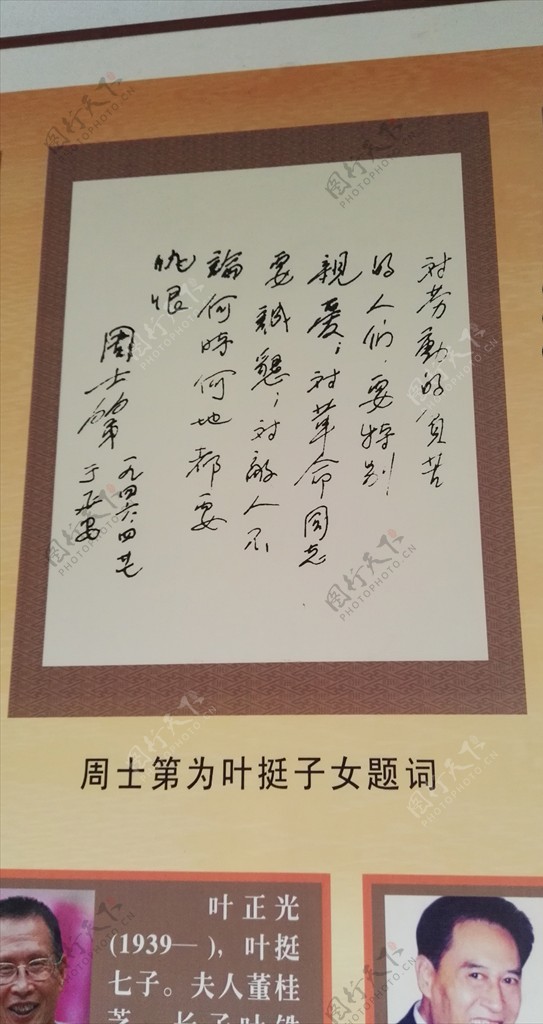 对劳動的贫苦
的人们，要特别
親爱；对革命同志
要誠懇；对敵人不
論何時何地都要
仇恨
周士第
一九四六·四·廿
于延安
周士第为叶挺子女题词
叶正光
(1939— )，叶挺
七子。夫人董桂
芝，长子叶铁
图行天下
PHOTOPHOTO.CN